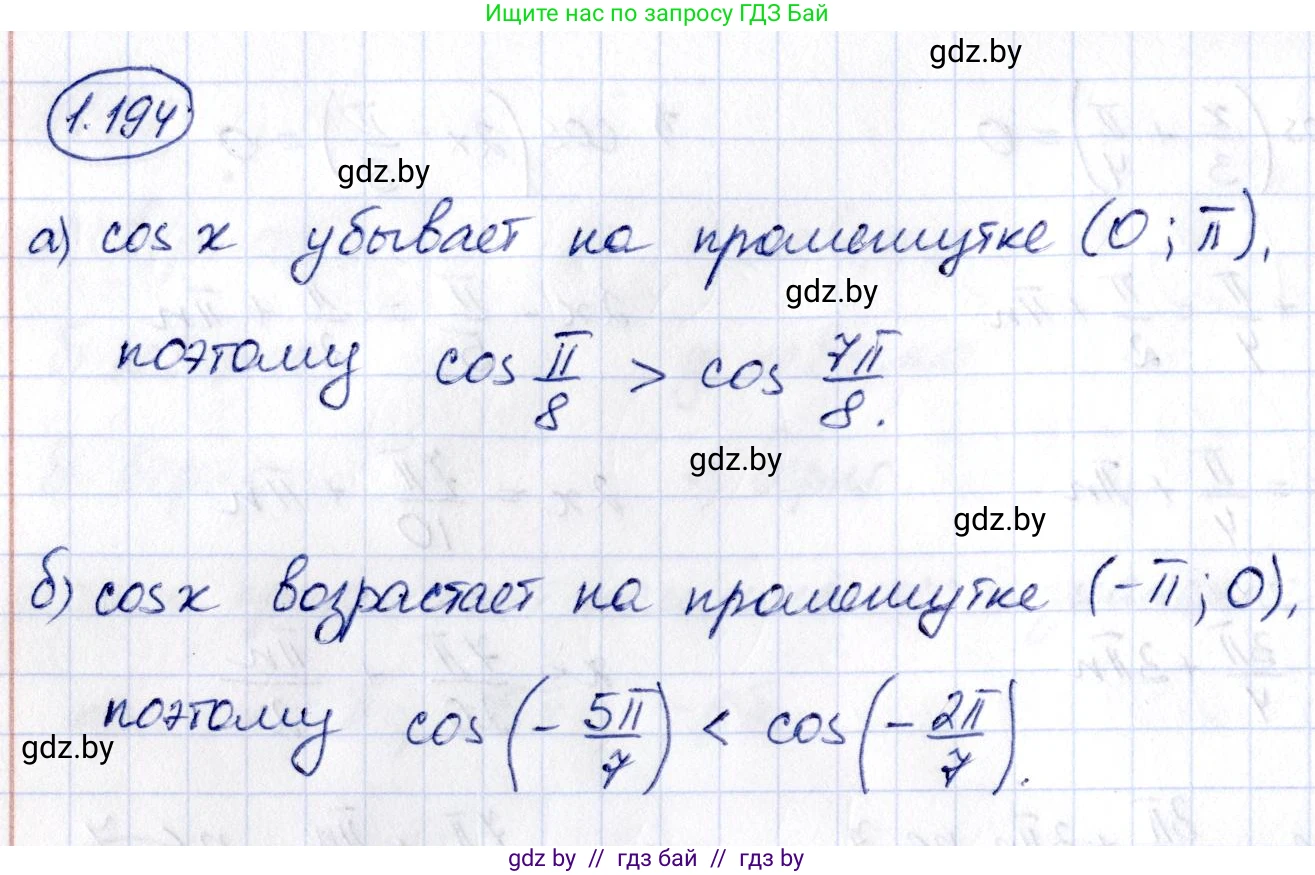 Ищите нас по запросу ГДЗ Бай
gdz.by
1.194
gdz.by
а) cos x убывает на промежутке (0; π),
gdz.by
поэтому cos π/8 > cos 7π/8.
gdz.by
gdz.by
б) cos x возрастает на промежутке (-π; 0),
поэтому cos(-5π/7) < cos(-2π/7).
gdz.by
gdz.by // гдз бай // гдз by